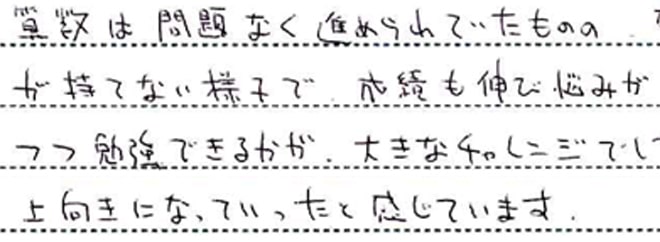 算数は問題なく進められていたものの、
が持てない様子で、成績も伸び悩みが
つつ勉強できるかが、大きなチャレンジでし
上向きになっていったと感じています。